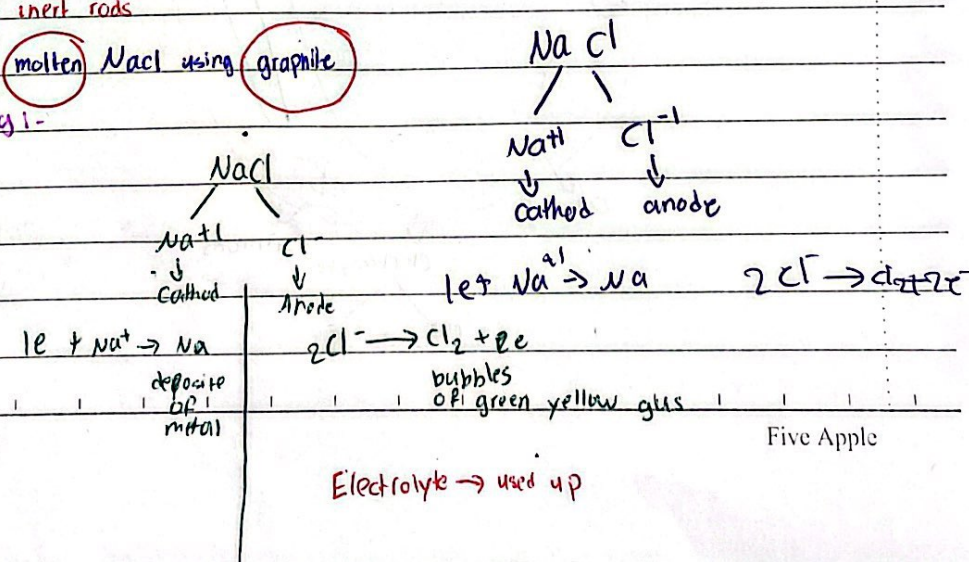 inert rods
molten Nacl using graphite
g 1-
Na Cl
Na+1 Cl-1
Cathod anode
NaCl
Na+1 Cl-
Cathod Anode
1e + Na+1 → Na 2Cl- → Cl2+2e-
1e + Na+ → Na 2Cl- → Cl2 + 2e
deposite
of
metal
bubbles
of green yellow gas
Five Apple
Electrolyte → used up